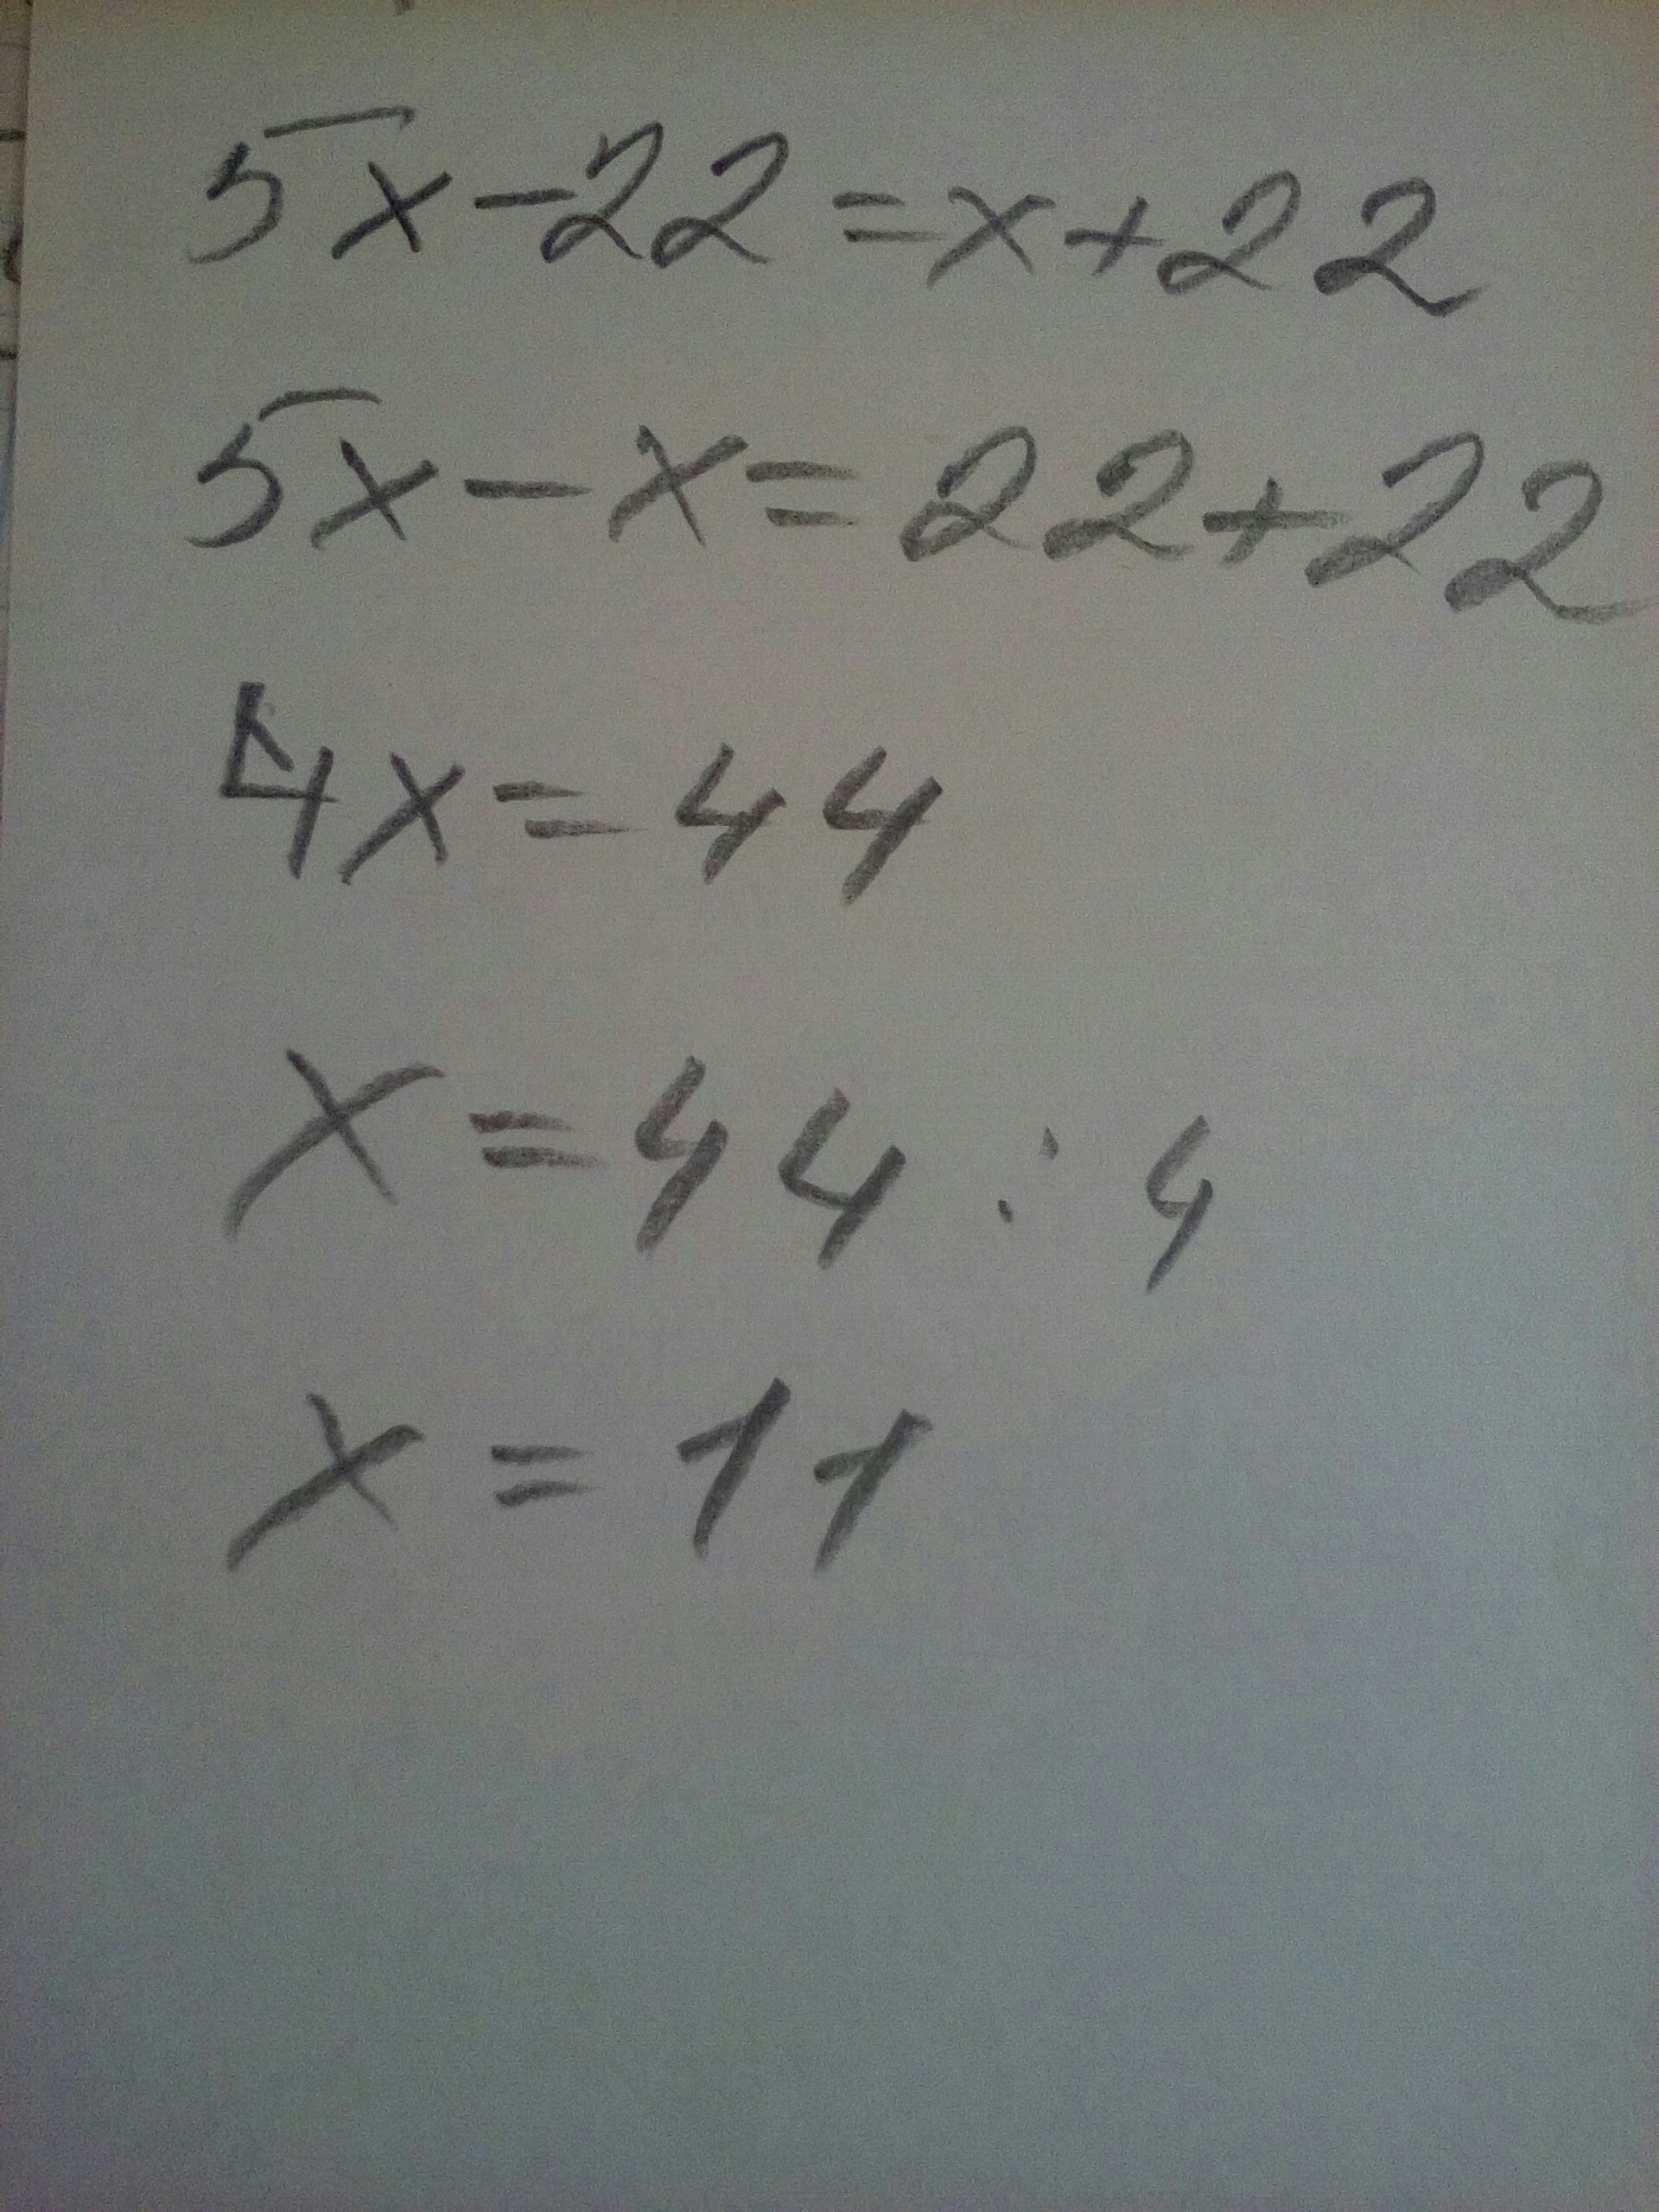 5x-22=x+22
5x-x=22+22
4x=44
x=44:4
x=11